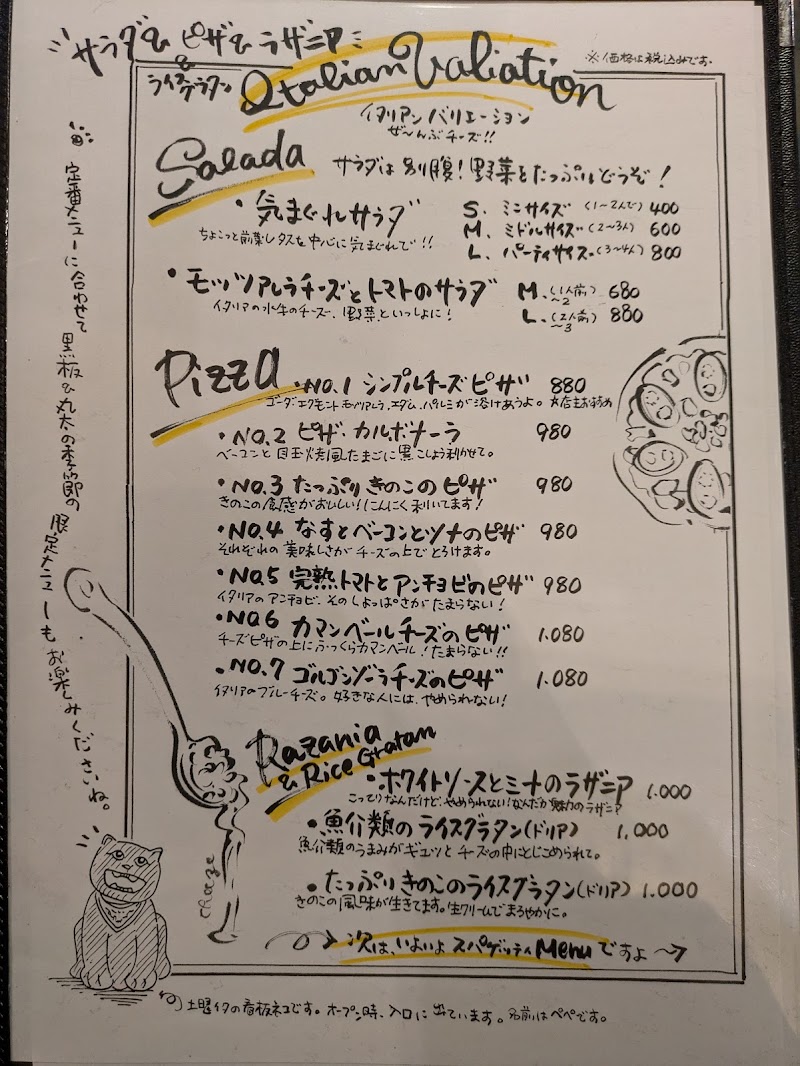 サラダ& ピザ& ラザニア
&
ライスグラタン
※価格は税込みです.
Italian Valiation
イタリアンバリエーション
ぜ〜んぶチーズ!!
Salada
サラダは別腹!野菜をたっぷりどうぞ!
・気まぐれサラダ
ちょこっと前菜レタスを中心に気まぐれで!!
S. ミニサイズ (1〜2人で) 400
M. ミドルサイズ (2〜3人) 600
L. パーティサイズ (3〜4人) 800
・モッツアレラチーズとトマトのサラダ
イタリアの水牛のチーズ、野菜といっしょに!
M. (1人前〜2) 680
L. (2人前〜3) 880
Pizza
・NO.1 シンプルチーズピザ 880
ゴーダ.エグモント.モッツアレラ.エダム.パルミが溶けあうよ。☆店主お勧め
・NO.2 ピザ・カルボナーラ 980
ベーコンと目玉焼風たまごに黒こしょう利かせて。
・NO.3 たっぷりきのこのピザ 980
きのこの食感がおいしい!にんにく利いてます!
・NO.4 なすとベーコンとツナのピザ 980
それぞれの美味しさがチーズの上でとろけます。
・NO.5 完熟トマトとアンチョビのピザ 980
イタリアのアンチョビ、そのしょっぱさがたまらない!
・NO.6 カマンベールチーズのピザ 1.080
チーズピザの上にふっくらカマンベール!たまらない!!
・NO.7 ゴルゴンゾーラチーズのピザ 1.080
イタリアのブルーチーズ。好きな人には、やめられない!
Razania
& Rice Gratan
・ホワイトソースとミートのラザニア 1.000
こってりなんだけど、やめられない!なんだか魅力のラザニア
・魚介類のライスグラタン(ドリア) 1.000
魚介類のうまみがギュッとチーズの中にとじこめられて。
・たっぷりきのこのライスグラタン(ドリア) 1.000
きのこの風味が生きてます。生クリームでまろやかに。
次は、いよいよスパゲッティMenuですよ
定番メニューに合わせて黒板&丸太の季節の限定メニューもお楽しみくださいね。
cheeze
土曜イタの看板ネコです。オープン時、入口に出ています。名前はペペです。